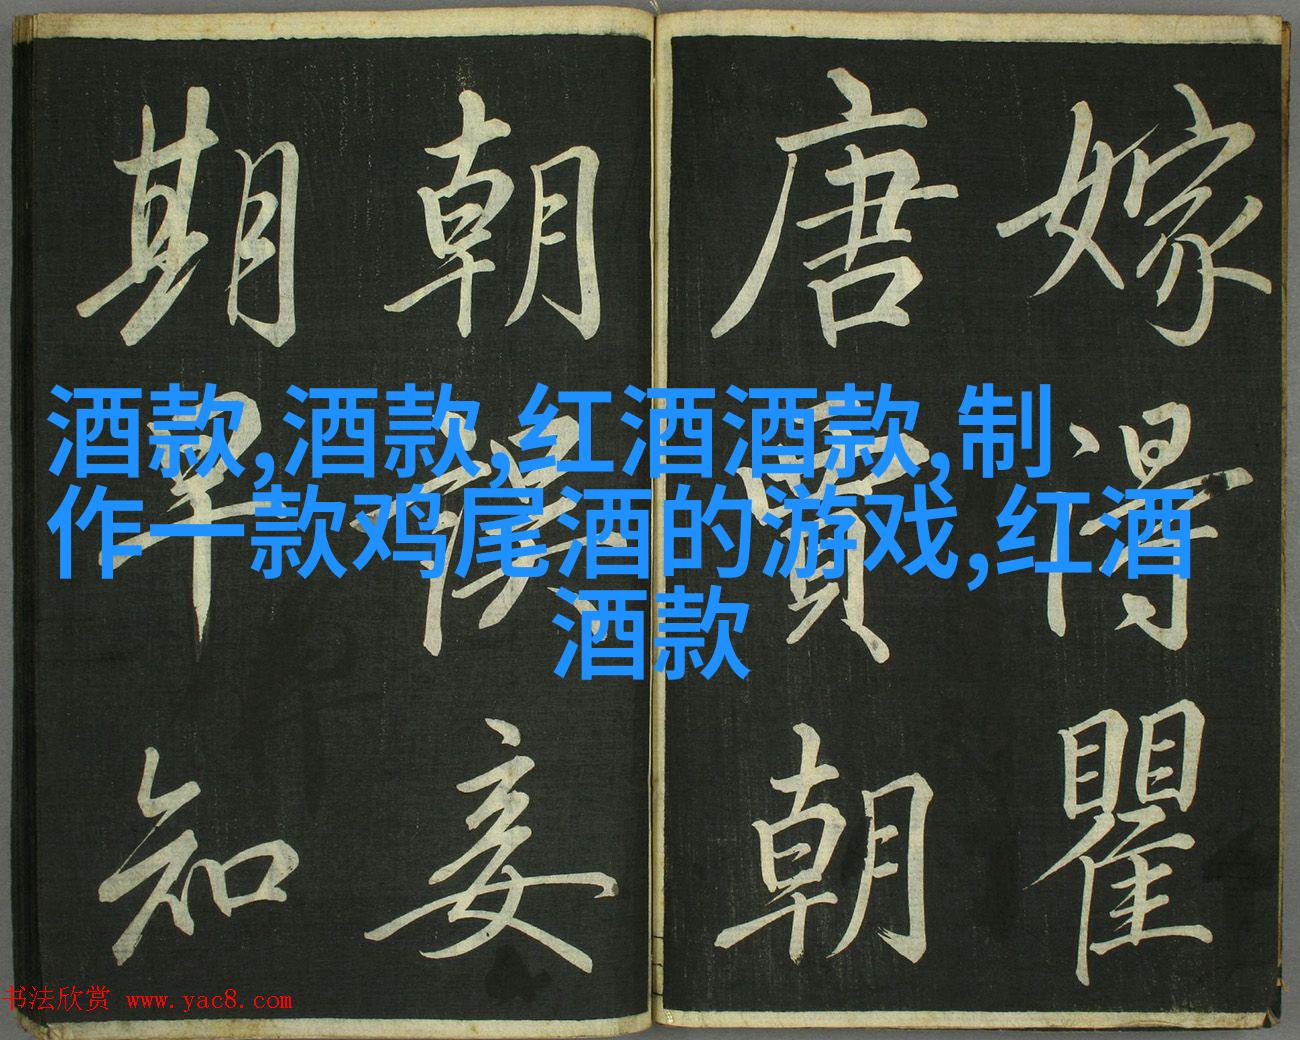 嫁得瞿
唐賈朝
朝誤妾
期早知
酒款,酒款,红酒酒款,制
作一款鸡尾酒的游戏,红酒
酒款
书法欣赏 www.yac8.com